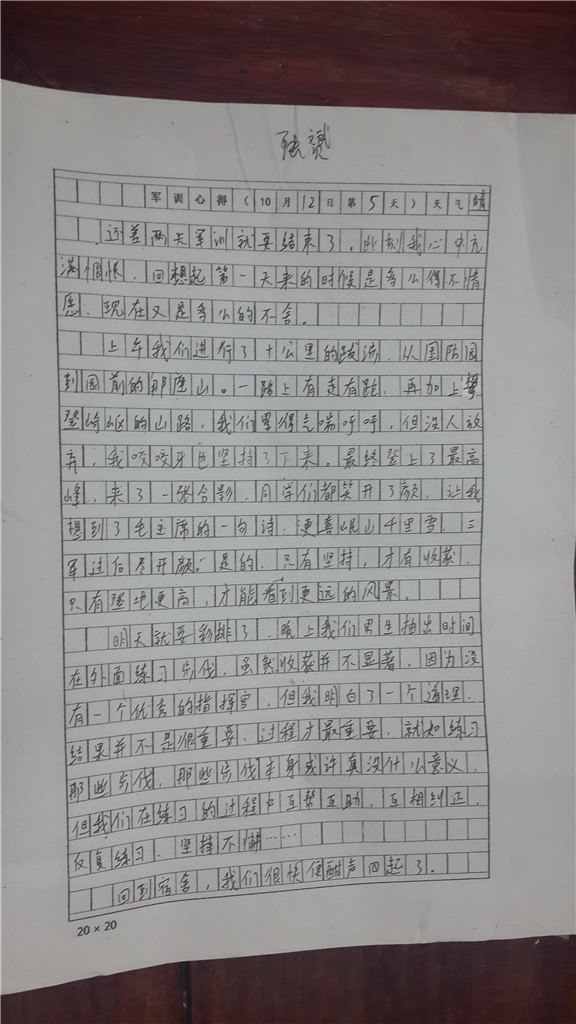 张赟
军训心得(10月12日第5天)天气晴
还差两天军训就要结束了,此刻我心中充
满惆怅,回想起第一天来的时候是多么得不情
愿,现在又是多么的不舍。
上午我们进行了十公里的跋涉,从国防园
到园前的那座山。一路上有走有跑,再加上攀
登崎岖的山路,我们累得气喘呼呼,但没人放
弃,我咬咬牙也坚持了下来。最终登上了最高
峰,来了一张合影,同学们都笑开了颜,让我
想到了毛主席的一句诗:更喜岷山千里雪,三
军过后尽开颜。是的,只有坚持,才有收获,
只有登功更高,才能看到更远的风景。
明天就要彩排了,晚上我们男生抽出时间
在外面练习步伐,虽然收获并不显著,因为没
有一个优秀的指挥官,但我明白了一个道理,
结果并不是很重要,过程才最重要,就如练习
那些步伐,那些步伐本身或许真没什么意义,
但我们在练习的过程中互帮互助,互相纠正,
反复练习,坚持不懈……
回到宿舍,我们很快便酣声四起了。
20×20